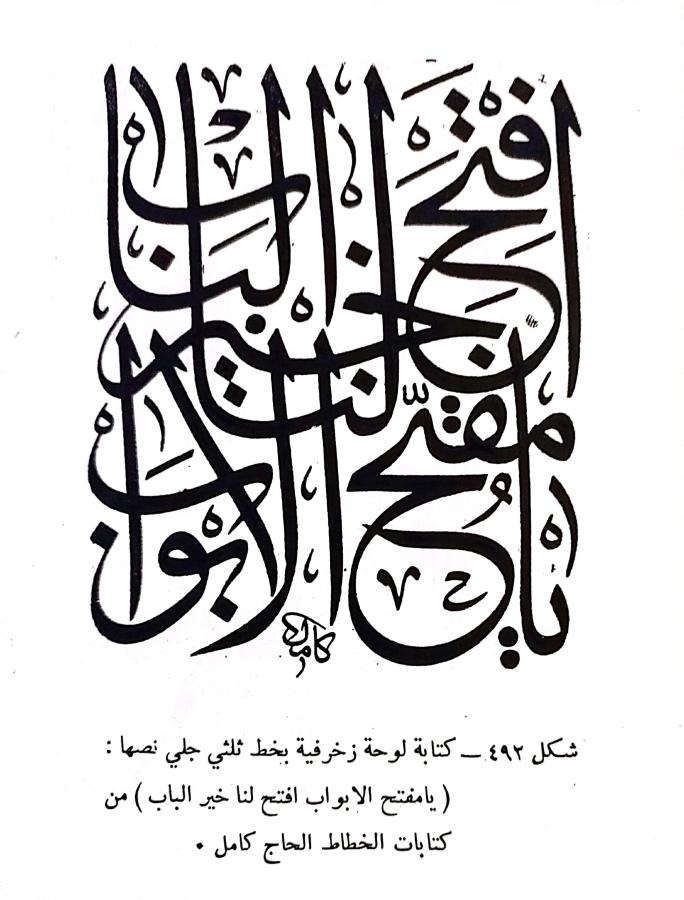 يا مفتح الابواب
افتح لنا خير الباب
كامل
شكل ٤٩٢ – كتابة لوحة زخرفية بخط ثلثي جلي نصها :
( يامفتح الابواب افتح لنا خير الباب ) من
كتابات الخطاط الحاج كامل .